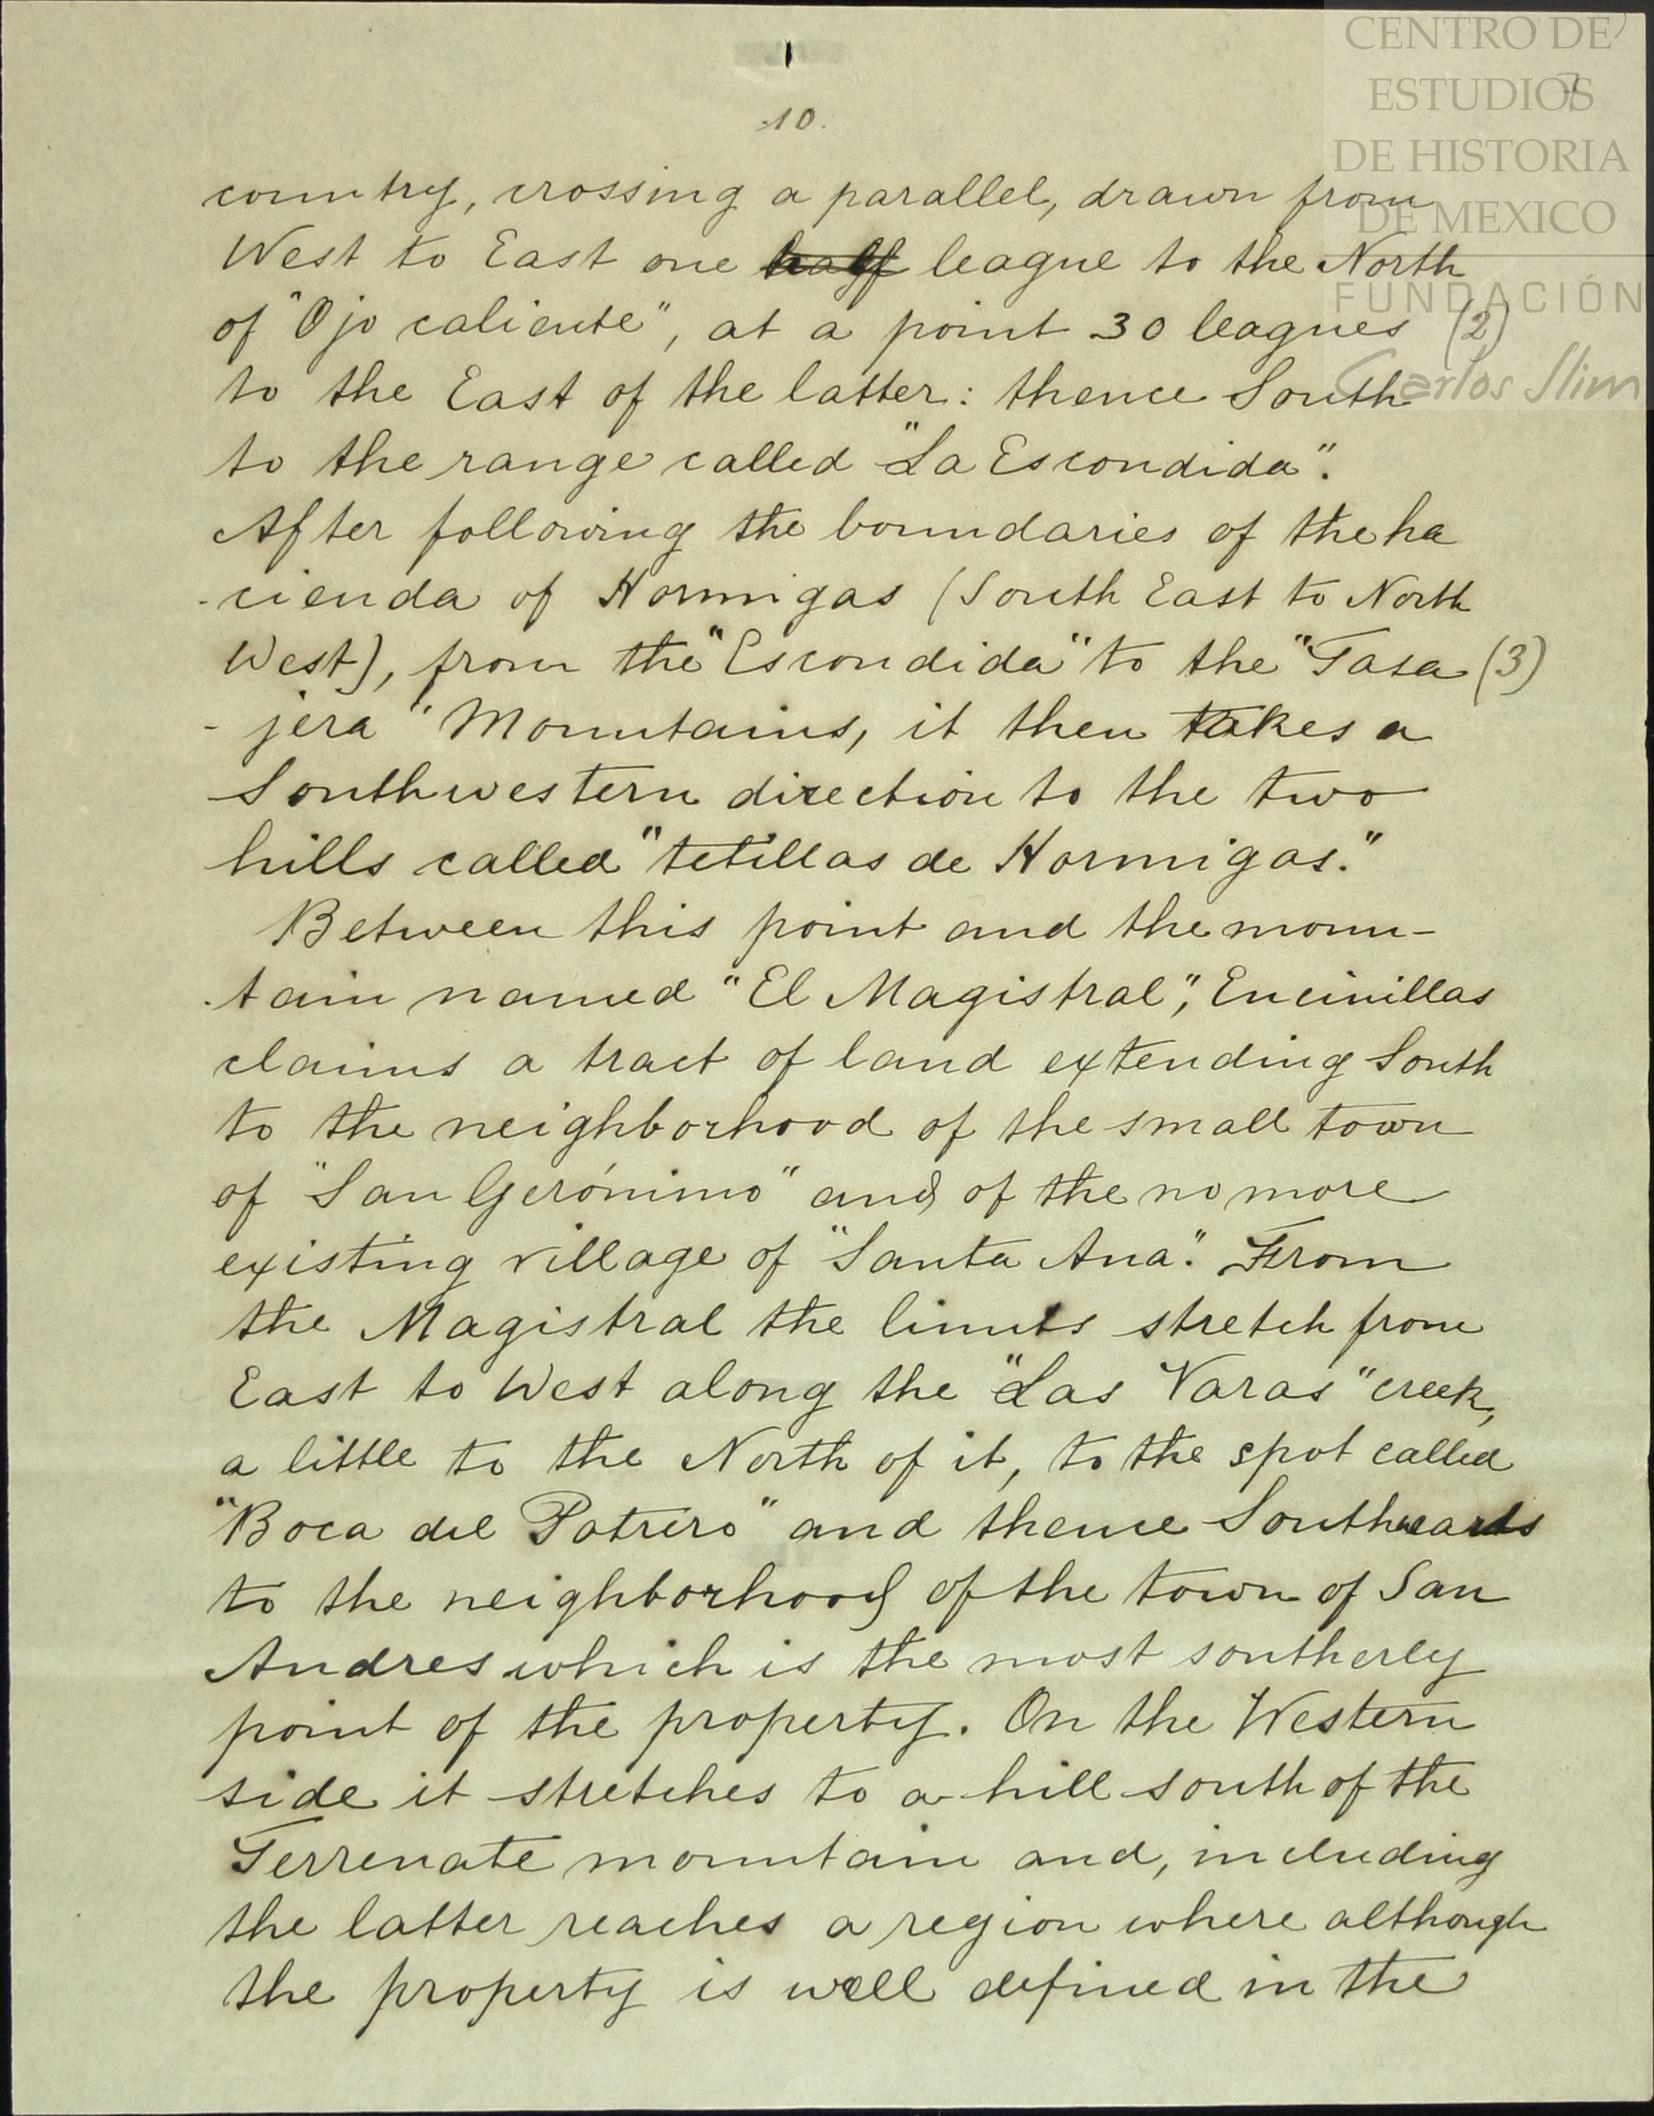 CENTRO DE
ESTUDIOS
DE HISTORIA
DE MEXICO
FUNDACIÓN
Carlos Slim
7
10.
country, crossing a parallel, drawn from
West to East one half league to the North
of "Ojo caliente", at a point 30 leagues (2)
to the East of the latter: thence South
to the range called "La Escondida".
After following the boundaries of the ha
-cienda of Hormigas (South East to North
West), from the "Escondida" to the "Tasa (3)
-jera" Mountains, it then takes a
Southwestern direction to the two
hills called "tetillas de Hormigas."
Between this point and the moun-
-tain named "El Magistral", Encinillas
claims a tract of land extending South
to the neighborhood of the small town
of "San Gerónimo" and of the no more
existing village of "Santa Ana". From
the Magistral the limits stretch from
East to West along the "Las Varas" creek,
a little to the North of it, to the spot called
"Boca del Potrero" and thence Southwards
to the neighborhood of the town of San
Andres which is the most southerly
point of the property. On the Western
side it stretches to a hill south of the
Terrenate mountain and, including
the latter reaches a region where although
the property is well defined in the